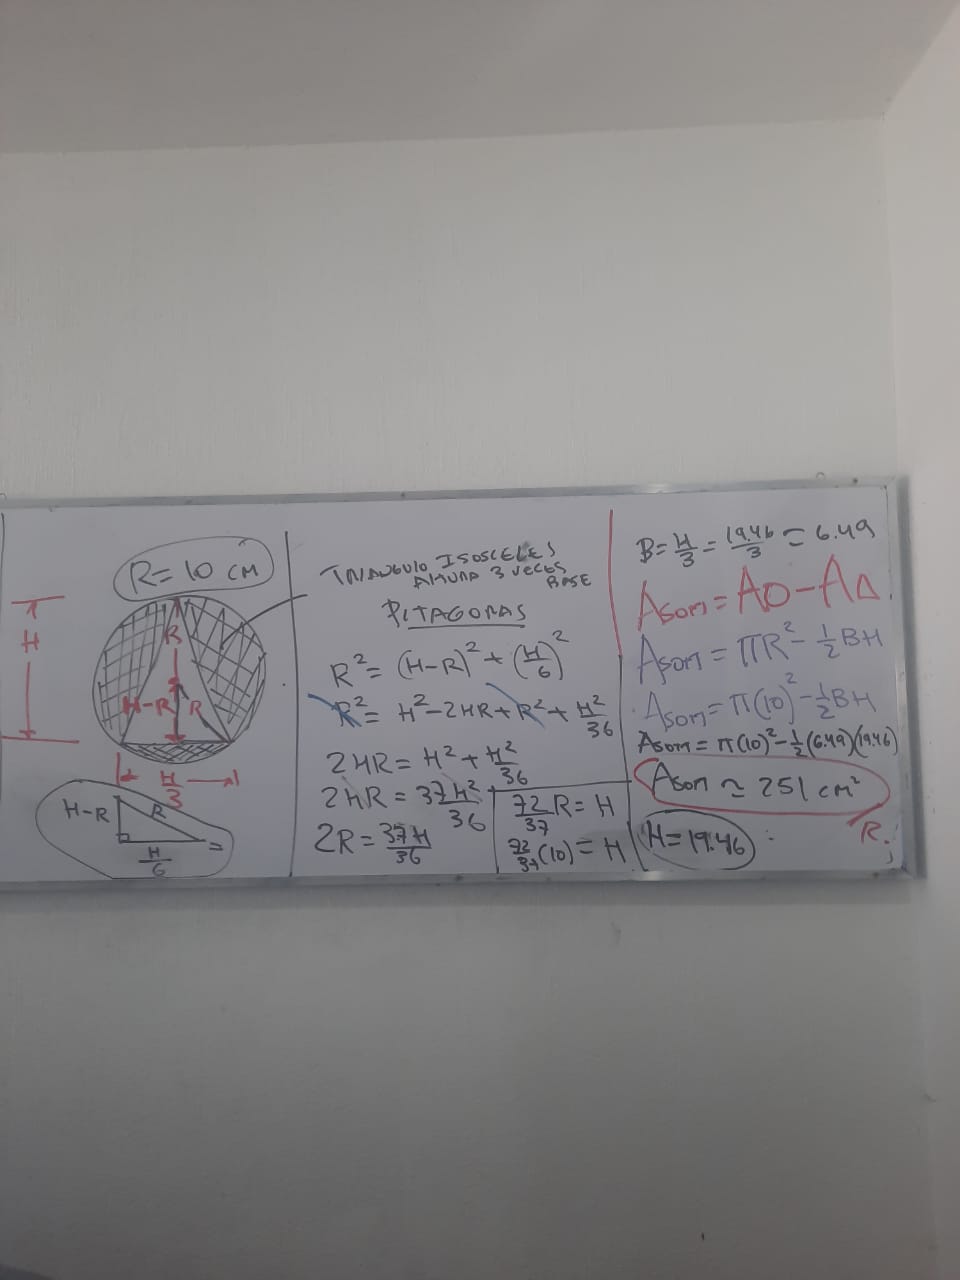 R = 10 CM
H
R
H-R
R
H/3
H-R
R
H/6
TRIANGULO ISOSCELES
ALTURA 3 VECES
BASE
PITAGORAS
R² = (H-R)² + (H/6)²
R² = H² - 2HR + R² + H²/36
2HR = H² + H²/36
2HR = 37H²/36
2R = 37H/36
72/37 R = H
72/37 (10) = H
B = H/3 = 19.46/3 = 6.49
Asom = A○ - A△
Asom = πR² - ½BH
Asom = π(10)² - ½BH
Asom = π(10)² - ½(6.49)(19.46)
Asom ≃ 251 cm²
R.
H = 19.46